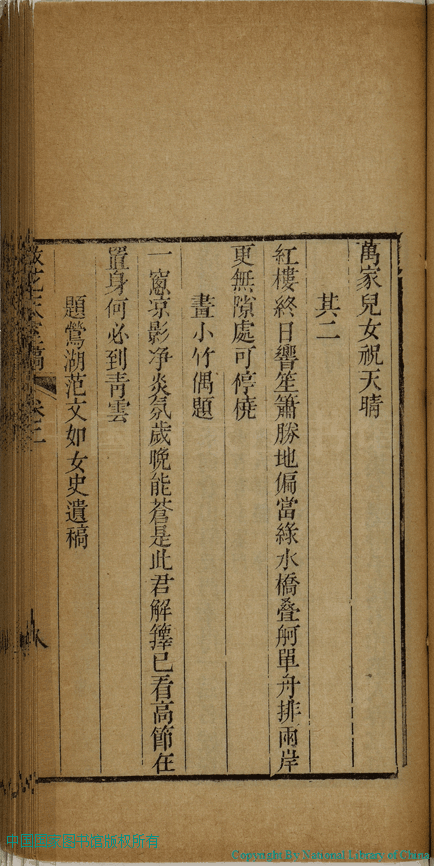 萬家兒女祝天晴
其二
紅樓終日響笙簫勝地偏當綠水橋叠舸單舟排兩岸
更無隙處可停橈
畫小竹偶題
一窻凉影净炎氛歲晚能蒼是此君解籜已看高節在
置身何必到青雲
題鶯湖范文如女史遺稿
中国国家图书馆版权所有
Copyright By National Library of China